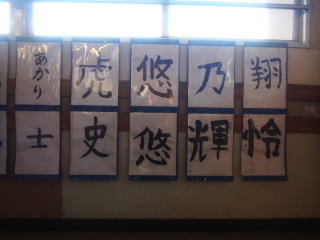 あかり 虎 悠 乃 翔
士 史 悠 輝 怜